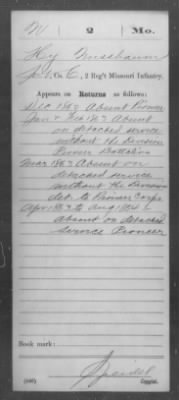 2 Mo.
Hy Nussbaum
Co. E, 2 Reg't Missouri Infantry.
Appears on Returns as follows:
Dec 1862 Absent Pioneer
Jan & Feb 1863 Absent
on detached service
without the Division
Pioneer Battalion
Mar 1863 Absent on
detached service
without the Division
det. to Pioneer Corps
Apr 1863 to Aug 1864
Absent on detached
Service Pioneer
Book mark:
Seidel
Copyist.